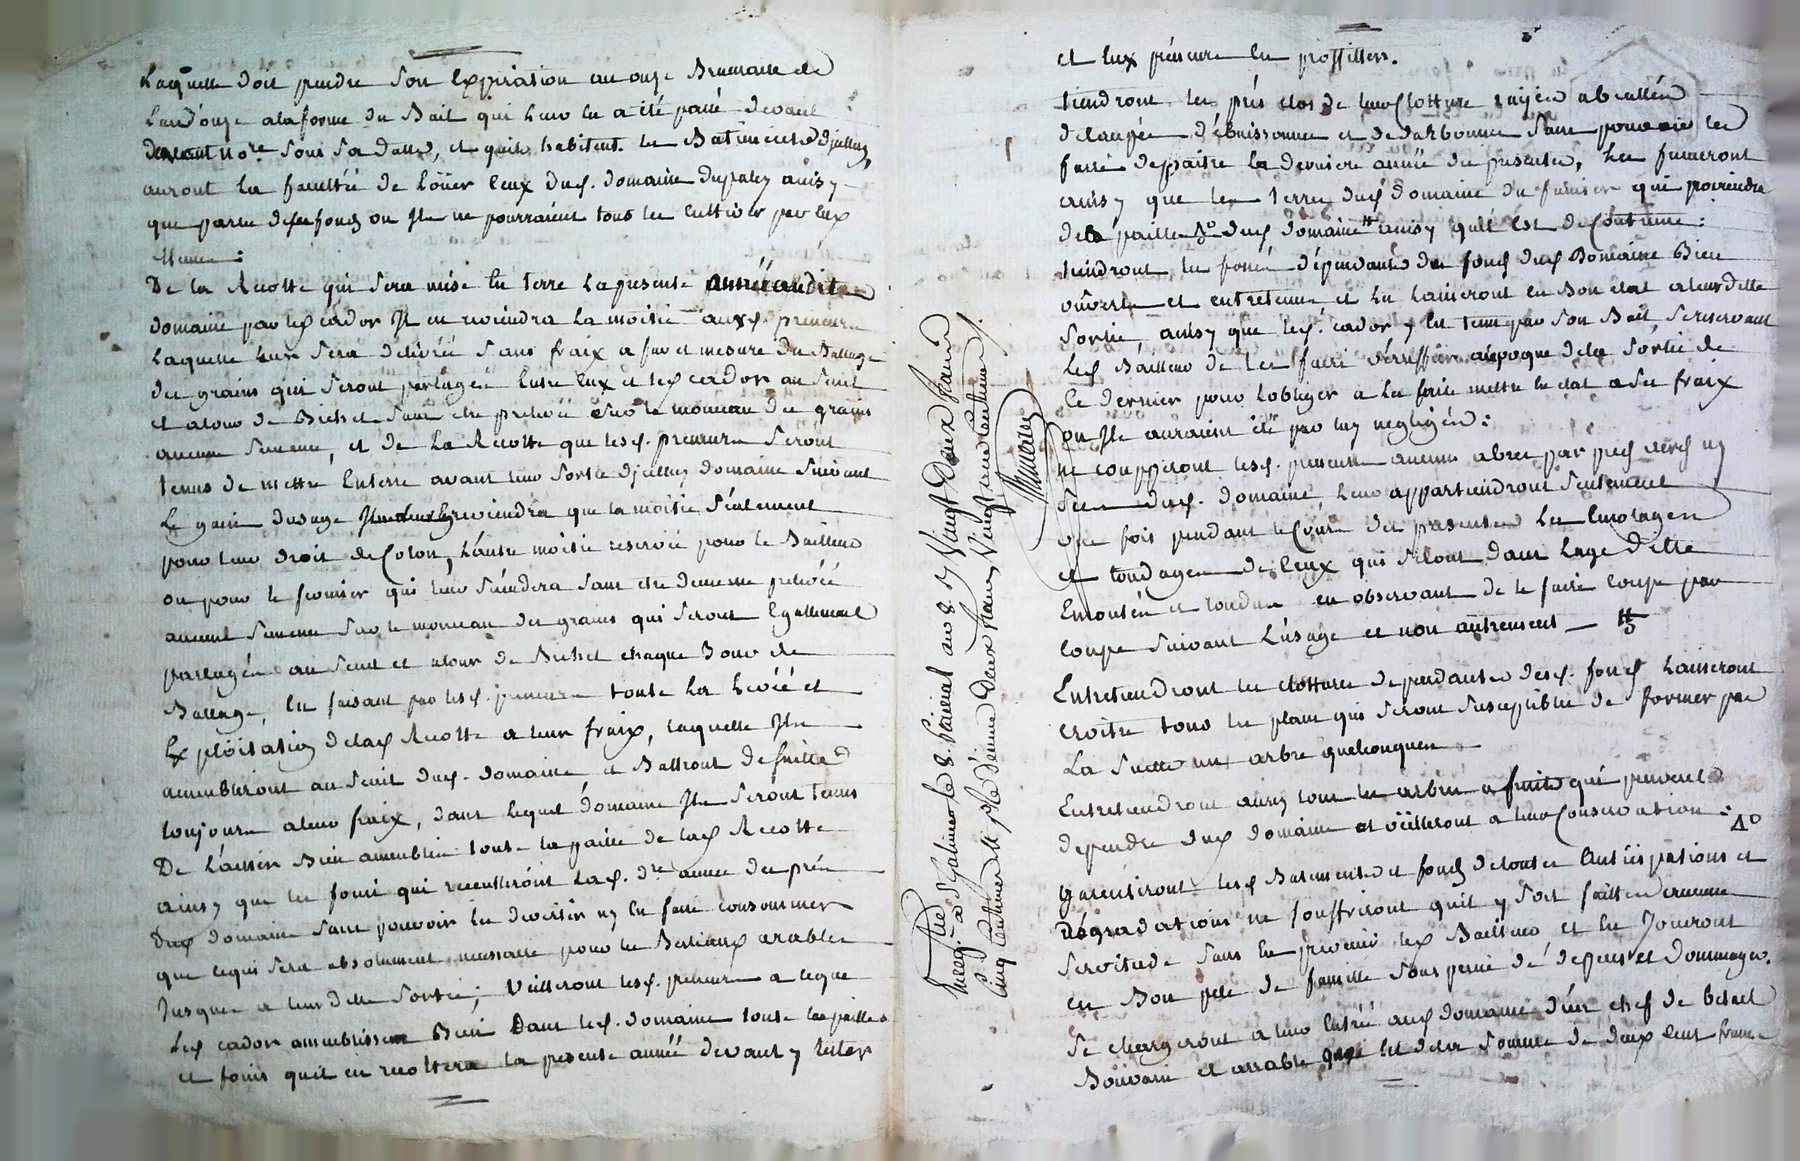 Laquelle doit prendre son Expiration au onze Brumaire de
L'an d'onze a la forme du Bail qui leur en a été passé devant
devant no.re sous sa datte, et quils habitent les Batiments d'jcelluy,
auront la faculté de loüer ceux dud. domaine du palay ainsy
que partie desd. fonds ou Jls ne pourraient tous les cultiver par eux
memes :
De la Recolte qui sera mise en terre la presente année audit
domaine par led. cador Jl en reviendra la moitié auxd. preneurs
Laquelle leur sera delivrée sans fraix a fur et mesure du Battage
des grains qui seront partagés Entre Eux et led. cador au seuil
et alour de Bichet sans etre prelevé sur le monceau des grains
aucune semence, et de la Recolte que lesd. preneurs seront
tenus de mettre Enterre avant leur sortie djcelluy domaine suivant
Le gain dusage reviendra que la moitié seulement
pour leur droit de Colon, l'autre moitié reservée pour le Bailleur
ou pour le fermier qui leur succedera sans etre de meme prelevé
aucune semence sur le monceau des grains qui seront Egallement
partagés au seuil et alour de Bichet chaque Jour de
Battage, en faisant par lesd. preneurs toute la levée et
Exploitation de lad. Recolte a leur fraix, laquelle Jls
ameubliront au seuil dud. domaine et Battront de suitte
toujours a leur fraix, dans lequel domaine Jls seront tenus
De laisser Bien ameublie toute la paille de lad. Recolte
ainsy que les foins qui recuilliront lad. d.re année des prés
dud. domaine sans pouvoir les divertir ny en faire consommer
que cequi sera absolument necessaire pour les Bestiaux arables
Jusques a leur dette sortie ; Veilleront lesd. preneurs a ceque
Led. cador ameublisse Bien Dans led. domaine toute les pailles
et foins quil en recoltera la presente année devant y rester
et eux preneurs en proffitter.
tiendront les prés clos de leur Clotture rayés abeallés
detaupés d'ébuissonnés et dedarbonnés sans pouvoir les
faire depaitre la derniere année du present, les fumeront
ainsy que les terres dud domaine du fumier qui proviendra
de la paille dud domaine ainsy quil est de Coutume :
tiendront les fossés dépendants du fond dud Domaine Bien
ouverts et entretenus et les laisseront en Bon etat a leur dette
sortie, ainsy que led. cador y est tenu par son Bail se reservant
Led Bailleur de les faire veriffier a l'epoque dela sortie de
Ce dernier pour L'obliger a les faire mettre en etat a ses fraix
ou Jls auraient été par luy negligés :
ne coupperont lesd. preneurs aucuns abres par pied verd ny
sec dud. domaine leur appartiendront seulement
une fois pendant le Cours des presentes les Emotages
et tondages de ceux qui seront dans lage d'etre
Emoutés et tondus en observant de le faire coupe par
coupe suivant l'usage et non autrement —
Entretiendront les clottures dependantes desd. fonds laisseront
croitre tous les plans qui seront susceptibles de former par
La suette un arbre quelconques
Entretiendront aussy tous les arbres a fruits qui peuvent
dependre dud domaine et veilleront a leur Conservation :
Garentiront lesd Batiments et fonds de toutes Anticipations et
dégradations ne souffriront quil y soit faitte aucune
servitude sans en prevenir led Bailleur et en Joueront
en Bon pere de famille sous peine de depens et Dommages.
Se chargeront a leur Entrée aud domaine d'un chef de betail
Bouvain et arrable de la somme de deux cent francs
Enreg.tré a S.t Galmier le 8. Pairial an 8. Vingt Deux francs
cinq centimes Deux francs Vingt cinq centimes